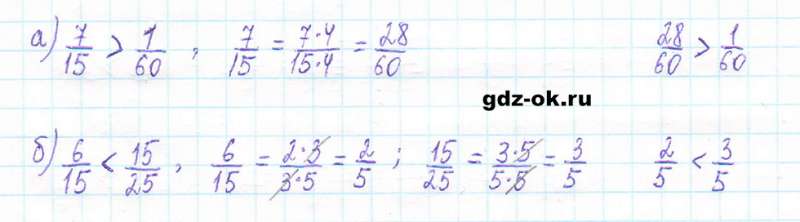 а) 7/15 > 1/60 , 7/15 = 7·4/15·4 = 28/60 28/60 > 1/60
gdz-ok.ru
б) 6/15 < 15/25 , 6/15 = 2·3/3·5 = 2/5 ; 15/25 = 3·5/5·5 = 3/5 2/5 < 3/5